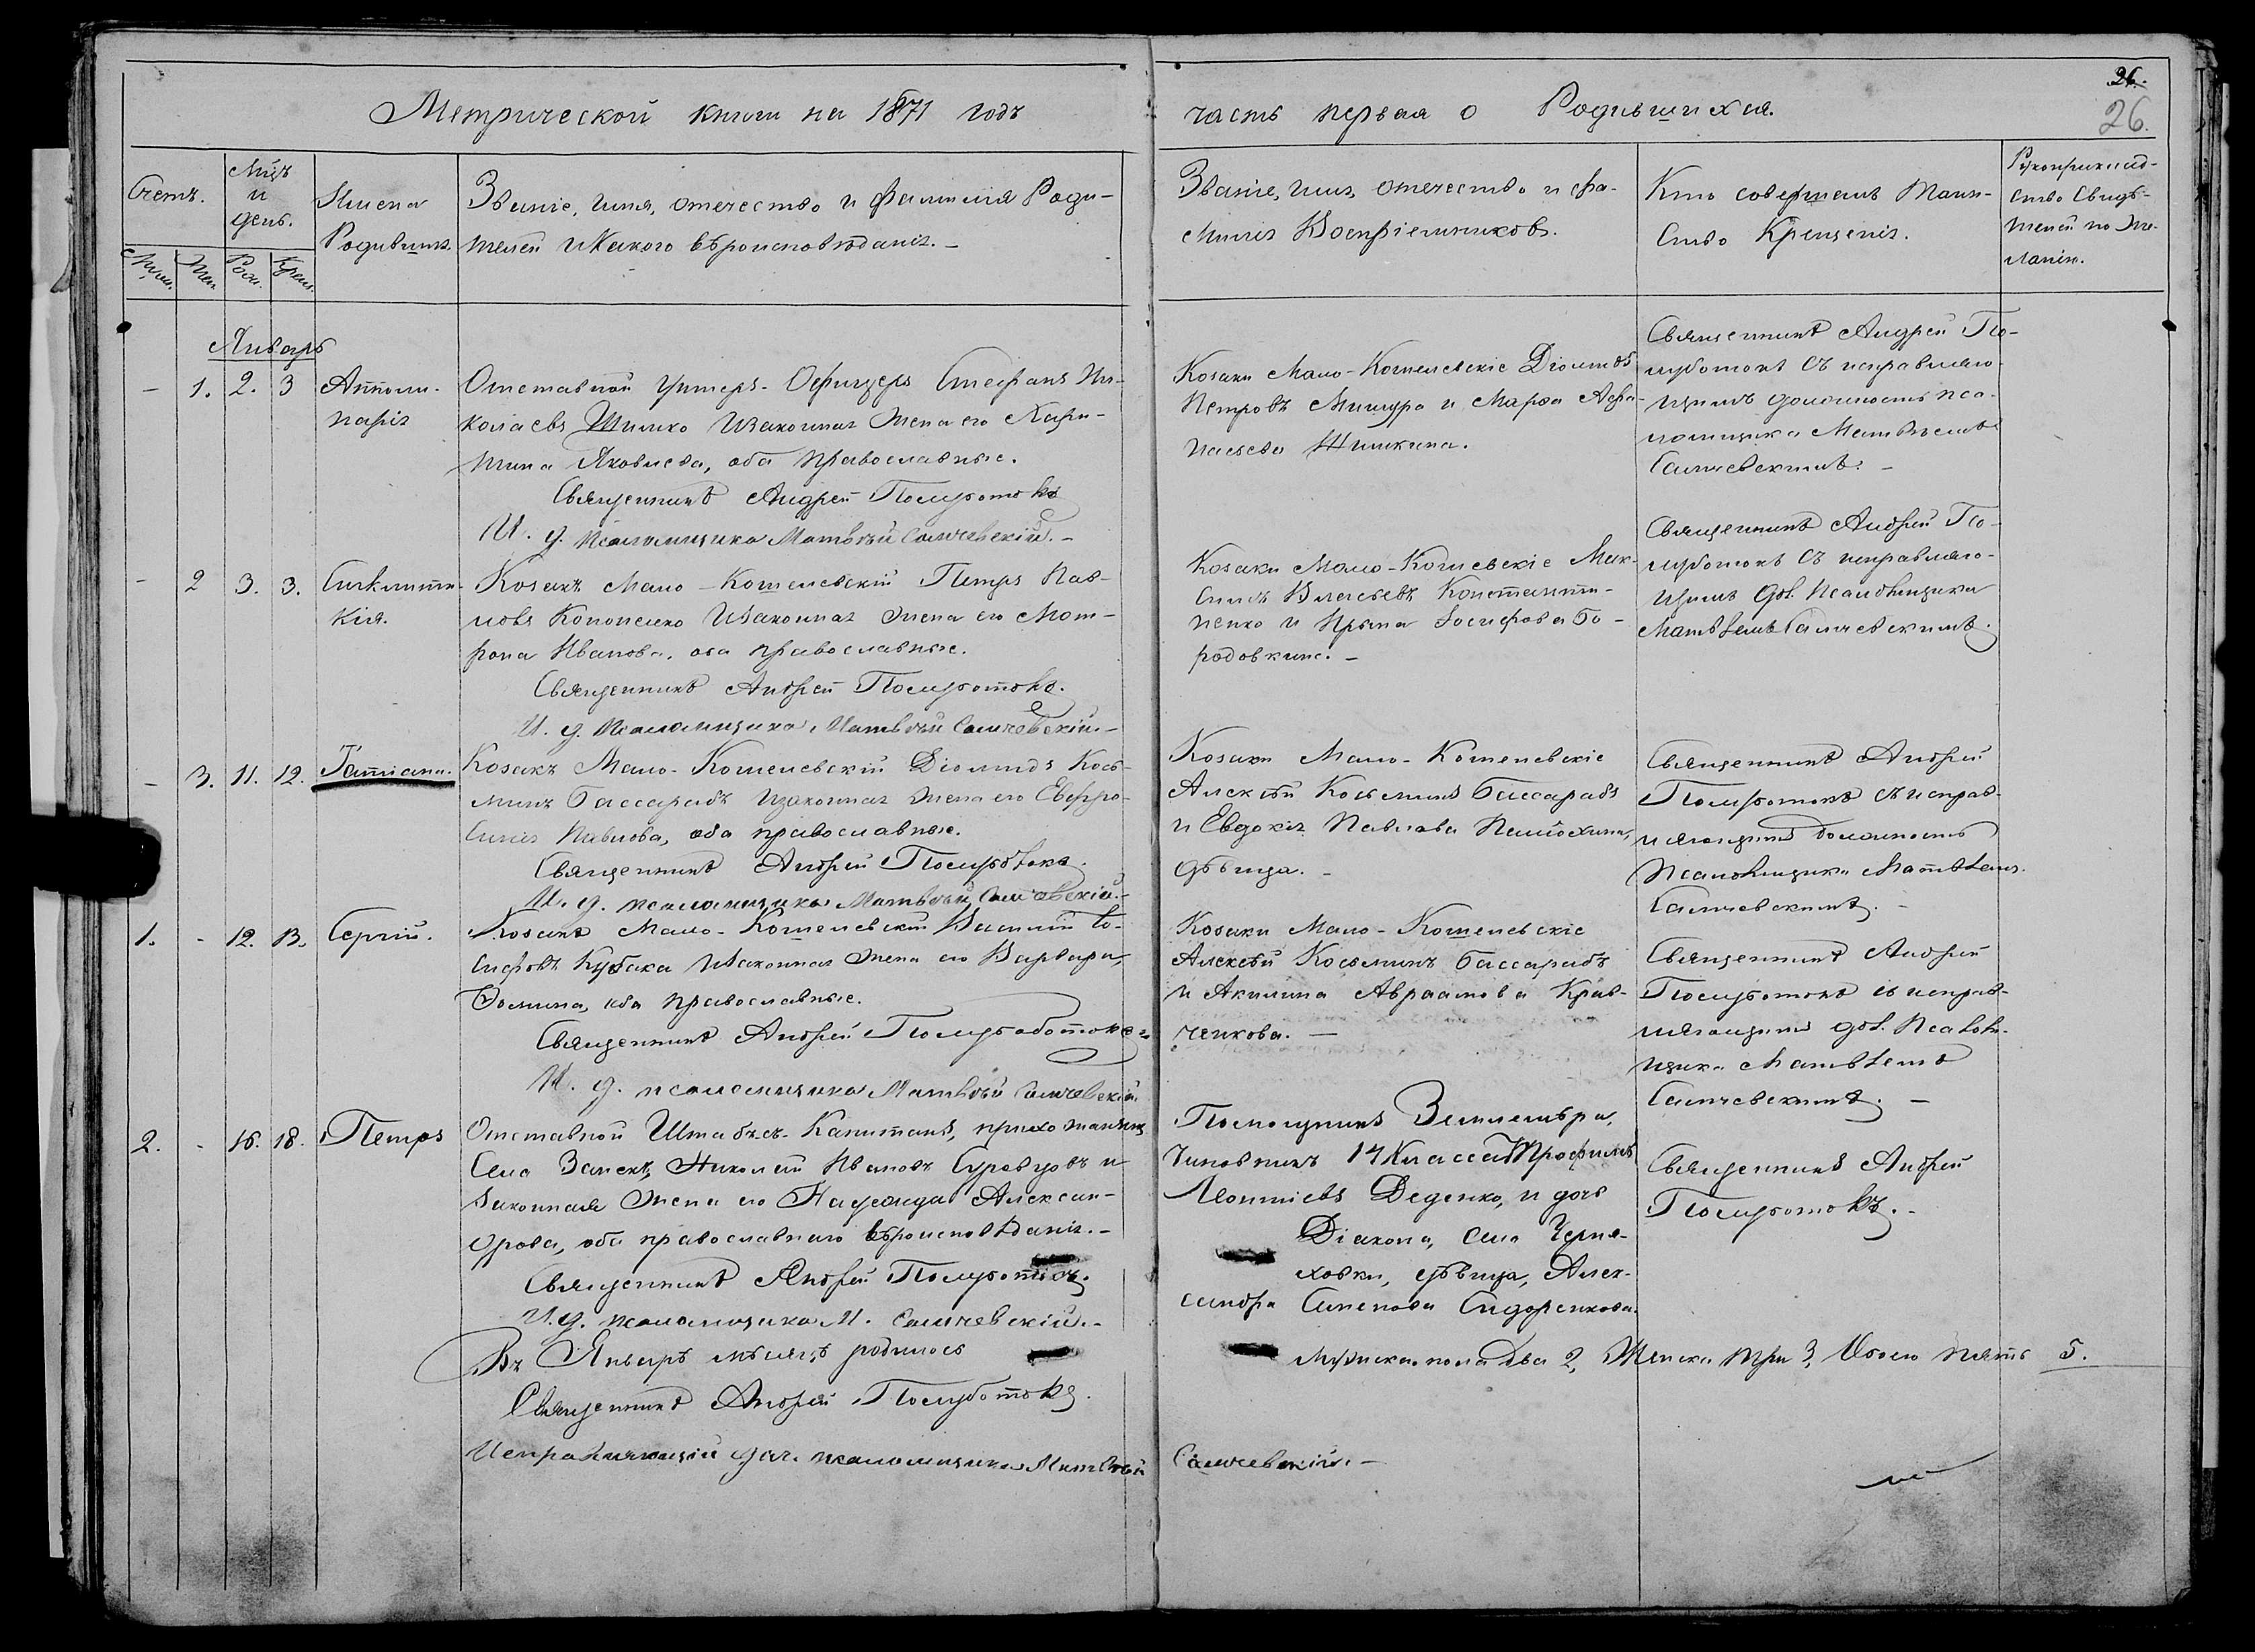 26.
26.
Метрической книги на 1871 годъ
часть первая о Родившихся.
Счетъ.
Мцъ
и
день.
Муж.
Жен.
Рож.
Крещ.
Имена
Родивших.
Званіе, имя, отечество и фамилія Роди-
телей и Какого вѣроисповѣданія. –
Званіе, имя, отечество и фа-
милія Воспріемниковъ.
Кто совершалъ Таин-
ство Крещенія.
Рукоприклад-
ство Свидѣ-
телей по Же-
ланію.
Январь
– 1. 2. 3
Апполи-
нарія
Отставной Унтеръ-Офицеръ Стефанъ Ни-
колаевъ Шишко и законная жена его Хари-
тина Яковлева, оба православные.
Священникъ Андрей Полуботокъ
И. д. псаломщика Матвѣй Саличевскій. –
Козаки Мало-Кошелевскіе Діомидъ
Петровъ и Марфа Афа-
насьева Шишкина.
Священникъ Андрей По-
луботокъ съ исправляю-
щимъ должность пса-
ломщика Матвѣемъ
Саличевскимъ. –
– 2 3. 3.
Синклити-
кія.
Козакъ Мало-Кошелевскій Петръ Пав-
ловъ Кононенко и законная жена его Мат-
рона Иванова, оба православные.
Священникъ Андрей Полуботокъ.
И. д. псаломщика Матвѣй Саличевскій. –
Козаки Мало-Кошелевскіе Мак-
симъ Власьевъ Константи-
ненко и Ирина Іосифова Бо-
родовкина. –
Священникъ Андрей По-
луботокъ съ исправляю-
щимъ дол. Псаломщика
Матвѣемъ Саличевскимъ.
– 3. 11. 12.
Татіана.
Козакъ Мало-Кошелевскій Діомидъ Кось-
минъ Бассарабъ и законная жена его Евфро-
синія Павлова, оба православные.
Священникъ Андрей Полуботокъ.
И. д. псаломщика Матвѣй Саличевскій. –
Козаки Мало-Кошелевскіе
Алексѣй Косьминъ Бассарабъ
и Евдокія Павлова
дѣвица. –
Священникъ Андрей
Полуботокъ съ исправ-
ляющимъ должность
Псаломщика Матвѣемъ
Саличевскимъ. –
1. – 12. 13.
Сергій.
Козакъ Мало-Кошелевскій Василій Іо-
сифовъ Кубака и законная жена его Варвара
Фомина, оба православные.
Священникъ Андрей Полуботокъ
И. д. псаломщика Матвѣй Саличевскій
Козаки Мало-Кошелевскіе
Алексѣй Косьминъ Бассарабъ
и Акилина Авраамова Крав-
ченкова. –
Священникъ Андрей
Полуботокъ съ исправ-
ляющимъ дол. Псалом-
щика Матвѣемъ
Саличевскимъ. –
2. – 16. 18.
Петръ
Отставной Штабсъ-Капитанъ, прихожанинъ
Села Николай Ивановъ Суровцовъ и
законная жена его Надежда Алексан-
дрова, оба православнаго вѣроисповѣданія. –
Священникъ Андрей Полуботокъ.
И. д. псаломщика М. Саличевскій. –
Помощникъ Землемѣра,
Чиновникъ 14 Класса Трофимъ
Леонтіевъ Деденко, и дочь
Діакона, села Черня-
ховки, дѣвица, Алек-
сандра Сименова Сидоренкова.
Священникъ Андрей
Полуботокъ. –
Въ Январѣ мѣсяцѣ родилось
Мужска пола два 2, Женска три 3, Обоего пять 5.
Священникъ Андрей Полуботокъ.
Исправляющій дол. псаломщика Матвѣй
Саличевскій. –